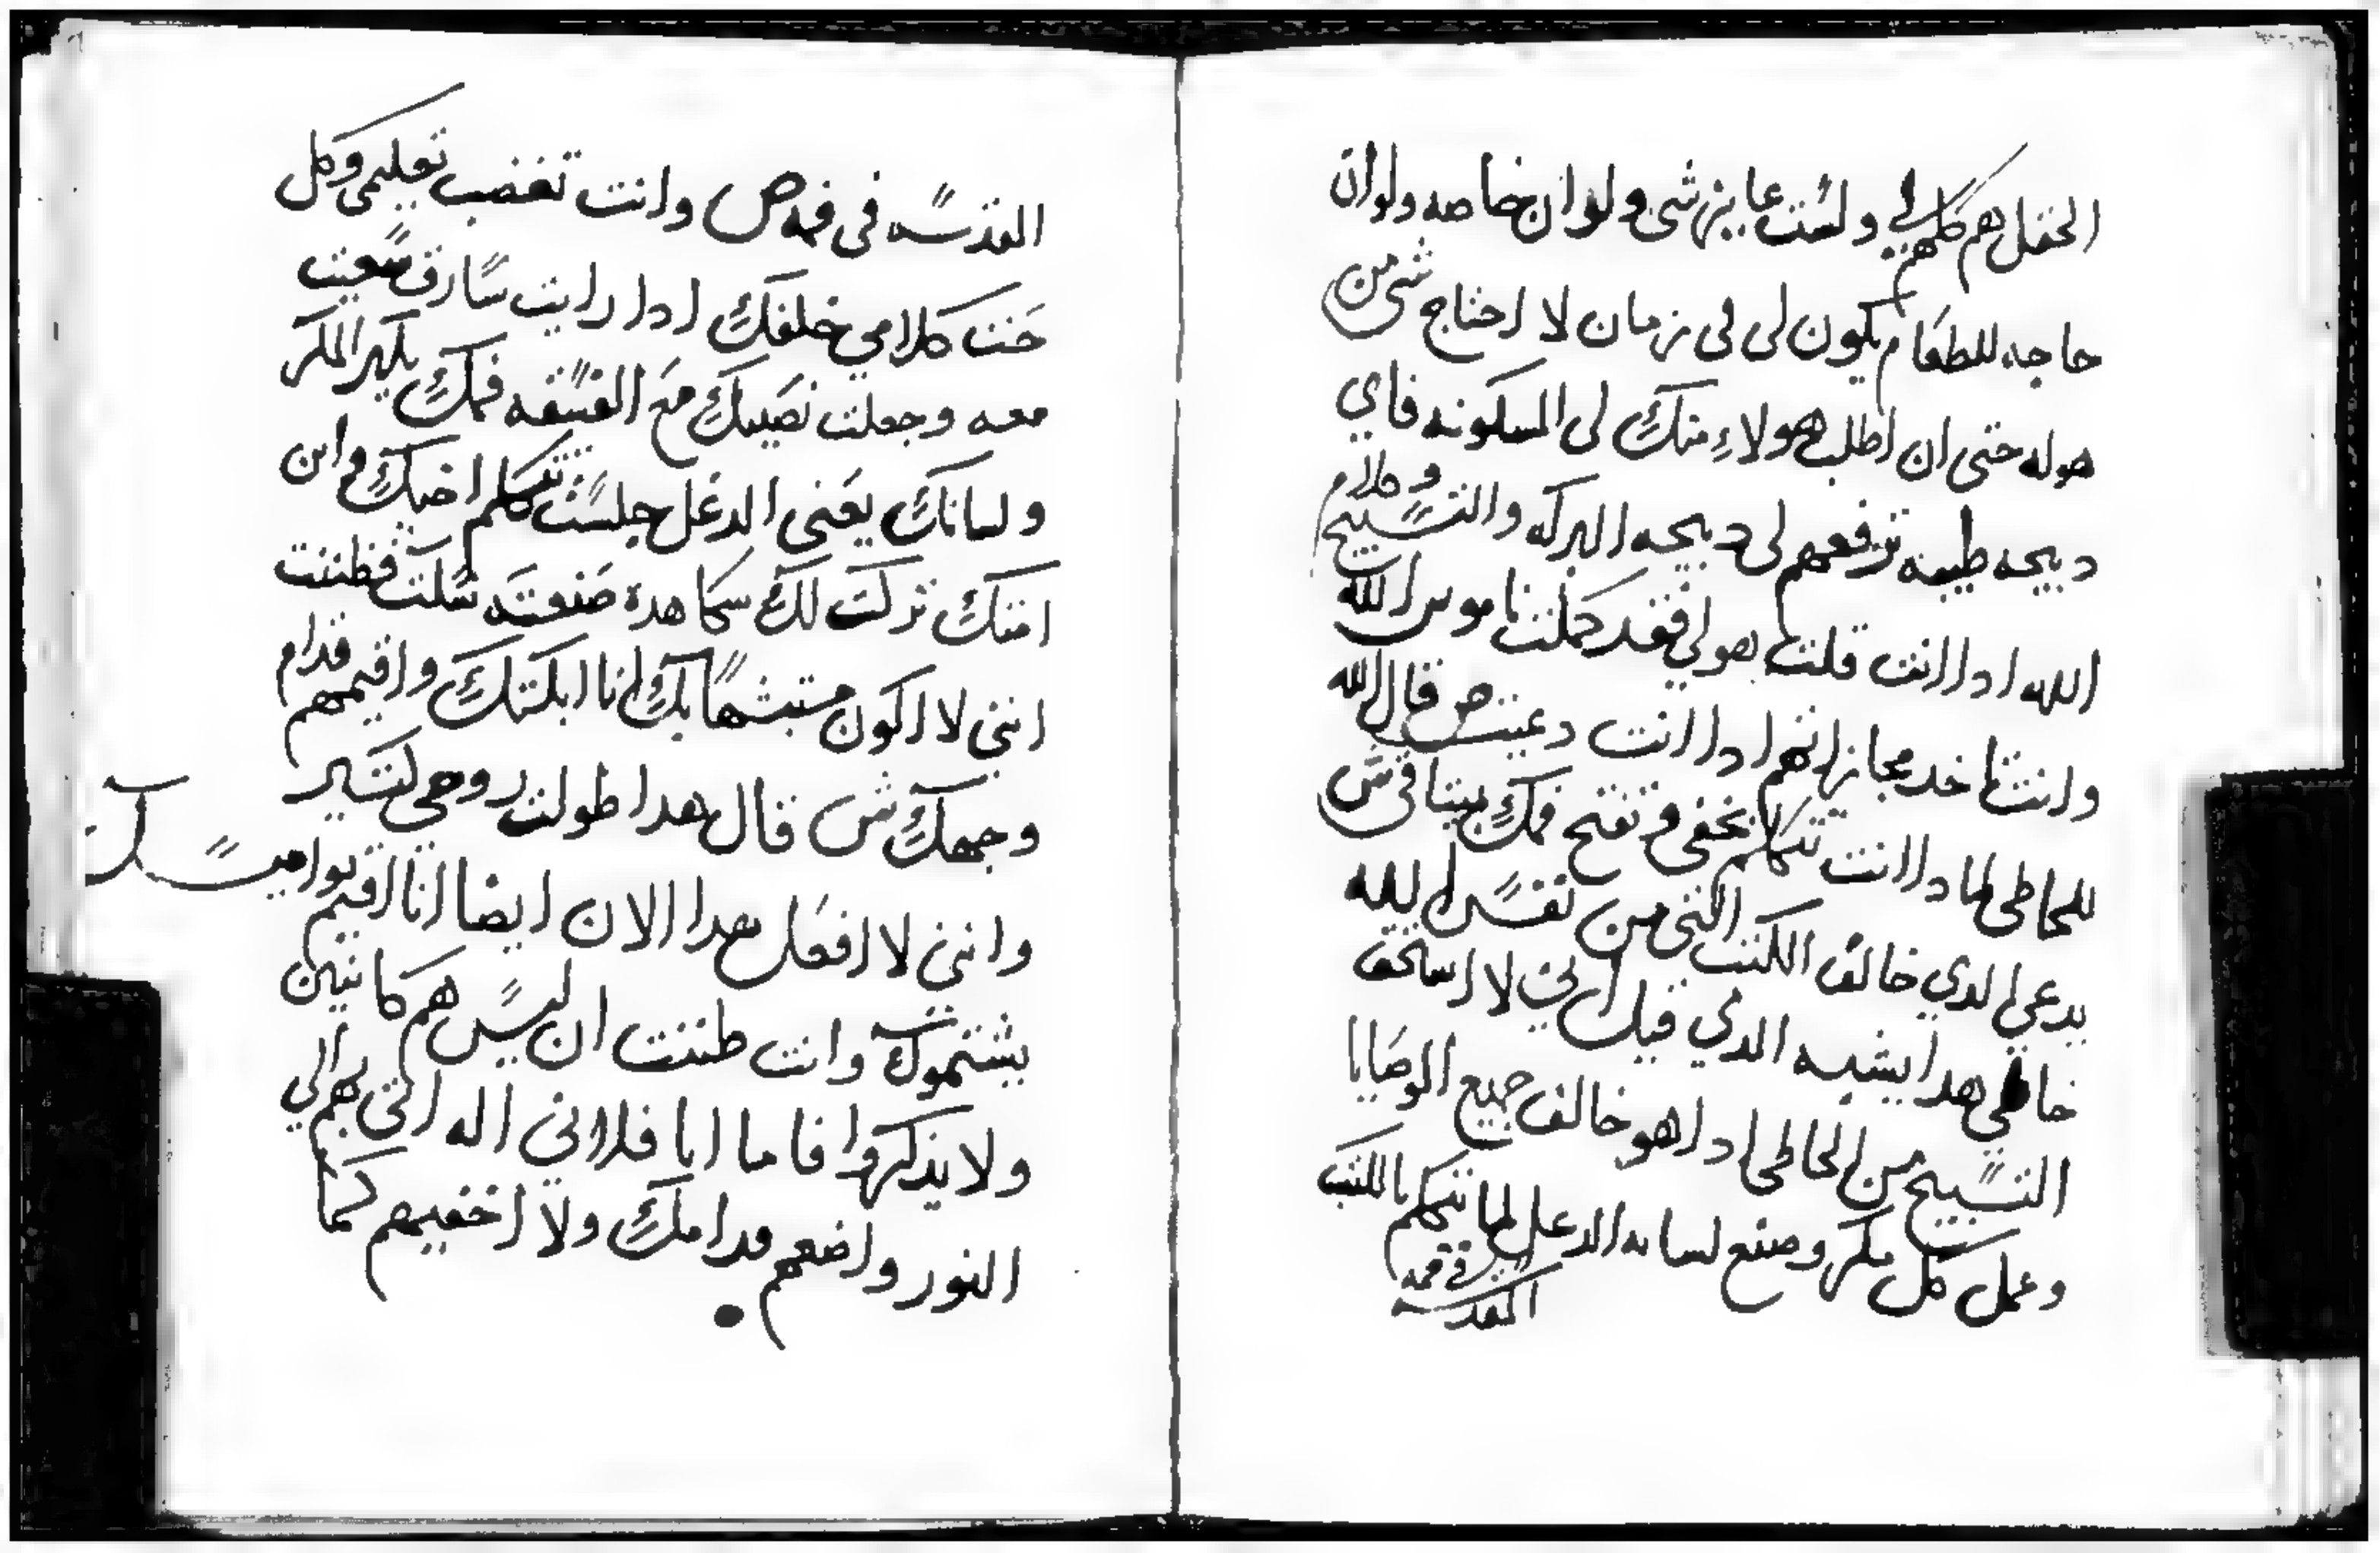 الحقل هم كلهم لي ولست عايز شي ولو ان خاصه ولو ان
حاجه للطعام يكون لي في زمان لا احتاج شي من
هوله حتى ان اطلب هولاء منك لي المسكونه فاي
دبيحه طيبه ترفعهم لي دبيحه البركه والتسبيح وكلام
الله ادا انت قلت هولي فقد كملت ناموس الله
وانت تاخد مجازاتهم ادا انت دعيتني ص قال الله
للخاطي لمادا انت تتكلم بحقي وتفتح فمك بيتاقي ش
يدعي الدي خالف الكتب التي من نفس الله
خاطي هدا يشبه الدي قيل اني لا استحق
التسبيح من الخاطي ادا هو خالف جميع الوصايا
وعمل كل مكر وصنع لسانه الدغل لما تتكلم بالكتب
في فمه
المقدسه
المقدسه في فمه ص وانت تغضب تعليمي وكل
حنت كلامي خلفك ادا رايت سارق سعيت
معه وجعلت نصيبك مع الفسقه فمك يكهر المكر
ولسانك يعني الدغل جلست تتكلم اخيك وابن
امك تركت لك سكا هده صنعته سكت فظننت
انني لا اكون متشبها بك انا ابكتك واقيمهم قدام
وجهك ش قال هدا طولت روحي لتسير
وانني لا افعل هدا الان ايضا انا اقيم نواميسك
يشتموك وانت ظننت ان ليس هم كاينين
ولا يذكروا فاما انا فلاني اله اتي بهم الي
النور واضعهم قدامك ولا اخفيهم كما